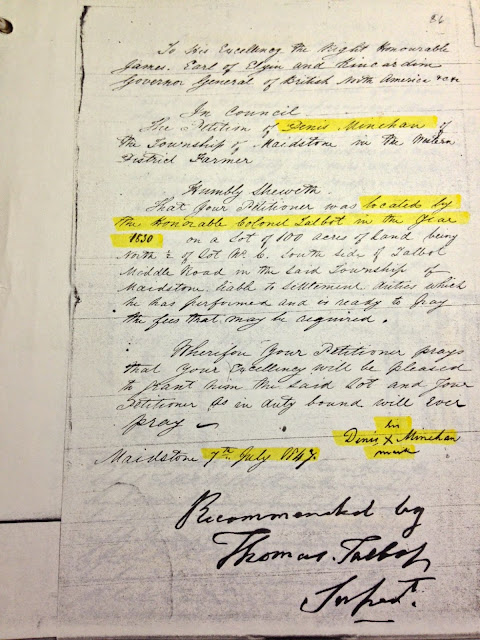 86
To His Excellency the Right Honourable
James, Earl of Elgin and Kincardin
Governor General of British North America &c &c
In Council
The Petition of Denis Minehan of
the Township of Maidstone in the Western
District Farmer
Humbly Sheweth
That Your Petitioner was located by
the Honorable Colonel Talbot in the Year
1830 on a Lot of 100 acres of Land being
North ½ of Lot No 6. South side of Talbot
Middle Road in the said Township of
Maidstone liable to settlement duties which
he has performed and is ready to pay
the fees that may be required.
Wherefore Your Petitioner prays
that Your Excellency will be pleased
to Grant him the said Lot and Your
Petitioner as in duty bound will Ever
pray
his
Denis X Minehan
mark
Maidstone 7th July 1847.
Recommended by
Thomas Talbot